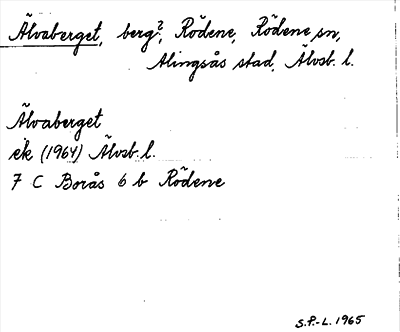 Älvaberget, berg?, Rödene, Rödene sn,
Alingsås stad, Älvsb. l.
Älvaberget
ek (1964) Älvsb. l.
7 C Borås 6 b Rödene
S.P.-L. 1965